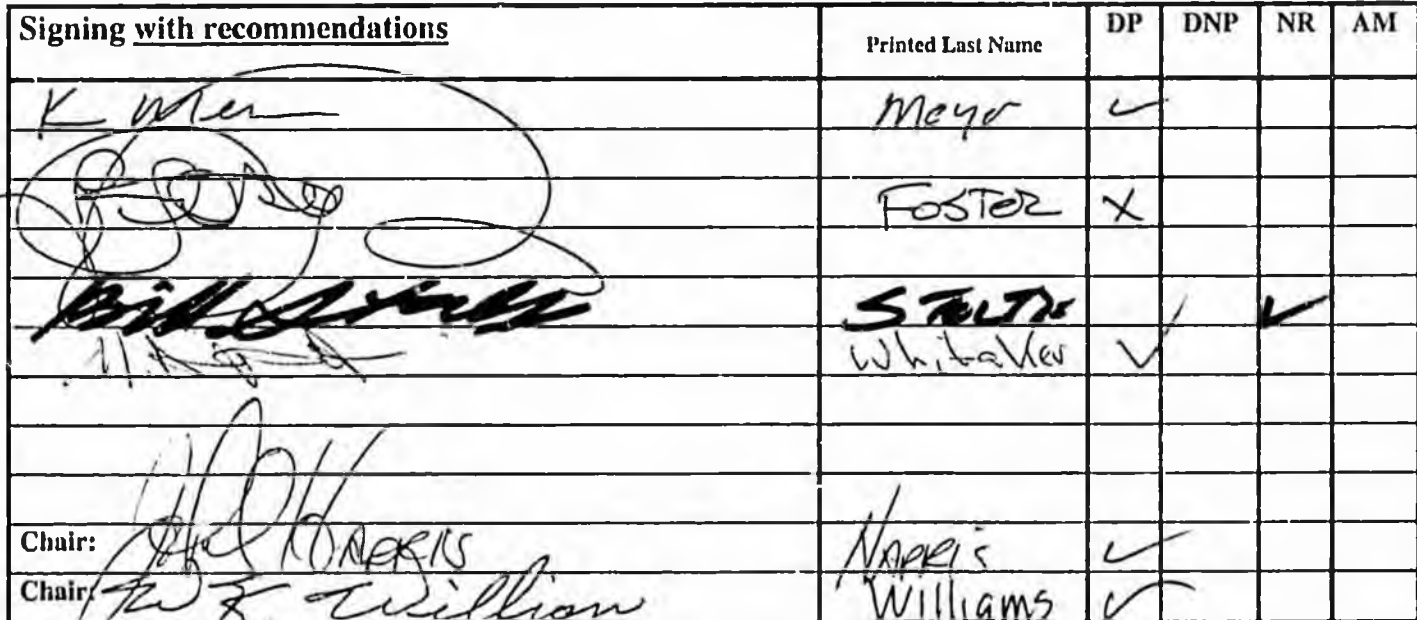 Signing with recommendations Printed Last Name DP DNP NR AM
K Meyer Meyer ✓
FOSTER X
Bill Stoltze STOLTZE ✓
Whitaker ✓
Chair: Harris HARRIS ✓
Chair: Williams Williams ✓